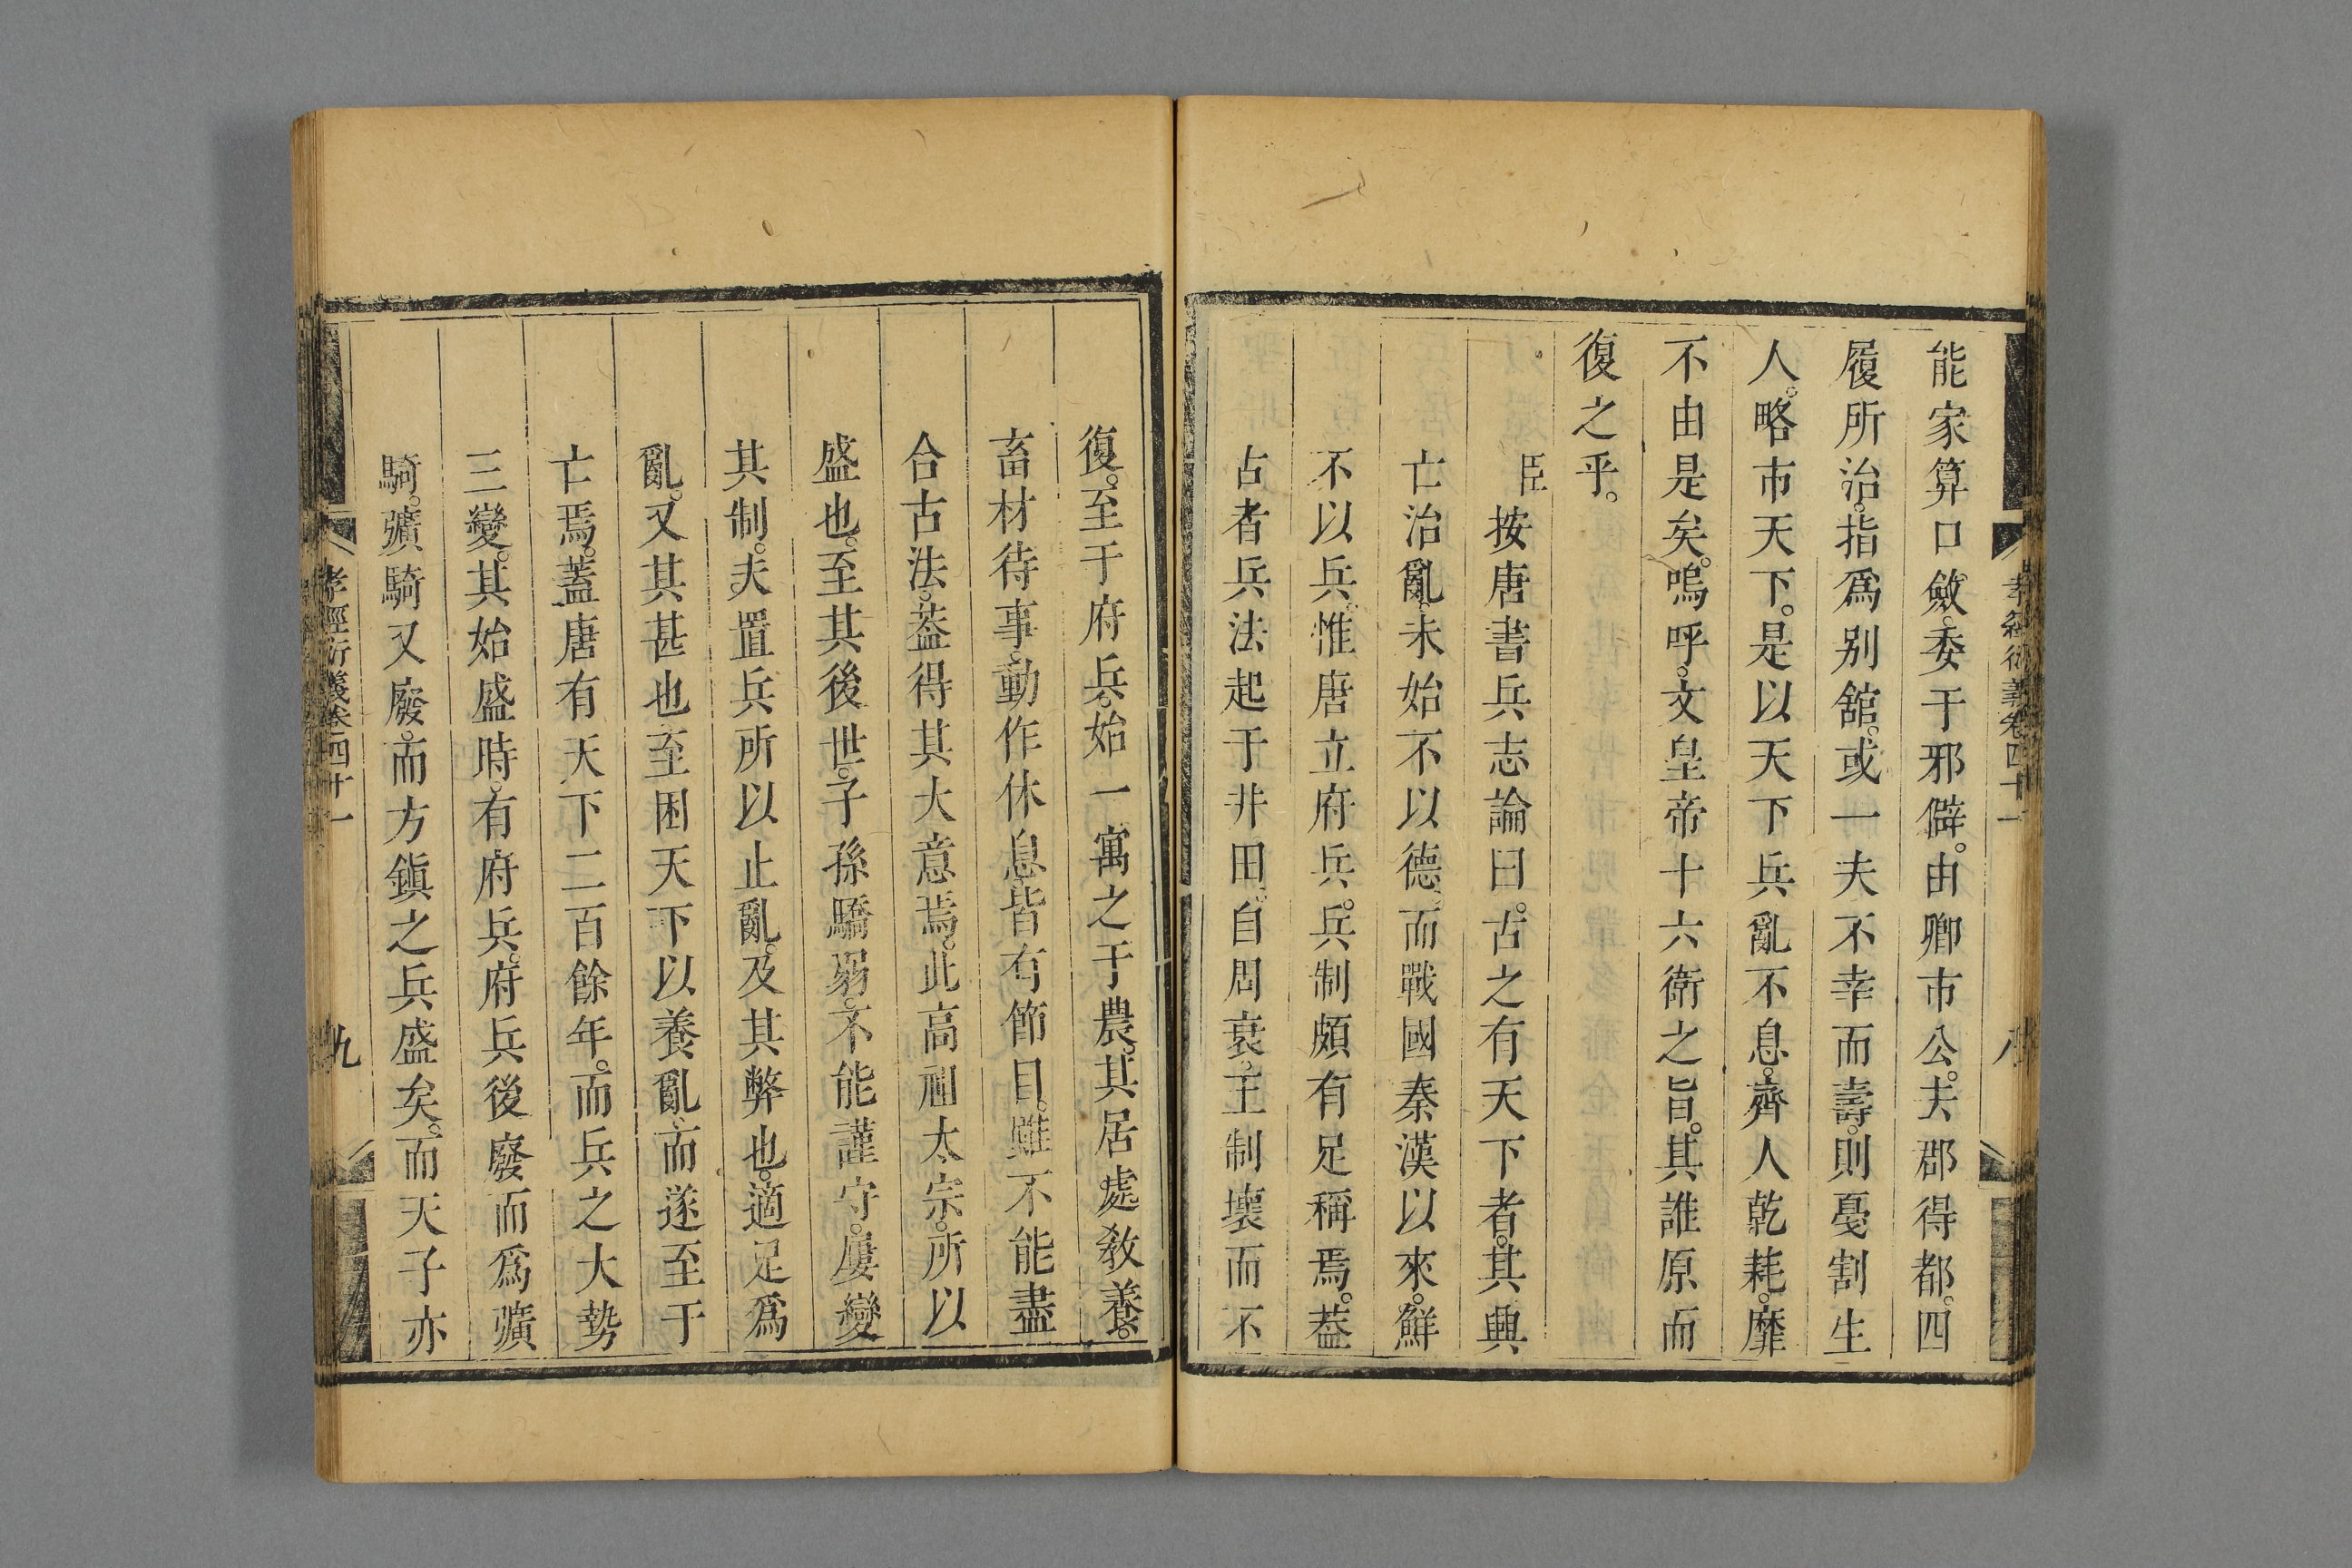 孝經衍義卷四十一
八
能家算口斂。委于邪僻。由卿市公。夫郡得都。四
履所治。指爲别舘。或一夫不幸而壽。則戞割生
人。略市天下。是以天下兵亂不息。齊人乾耗。靡
不由是矣。嗚呼。文皇帝十六衛之旨。其誰原而
復之乎。
臣按唐書兵志論曰。古之有天下者。其興
亡治亂。未始不以德。而戰國秦漢以來。鮮
不以兵。惟唐立府兵。兵制頗有足稱焉。葢
古者兵法起于井田。自周衰。王制壞而不
復。至于府兵。始一寓之于農。其居處敎養。
畜材待事。動作休息。皆有節目。雖不能盡
合古法。葢得其大意焉。此高祖太宗。所以
盛也。至其後世。子孫驕弱。不能謹守。屢變
其制。夫置兵所以止亂。及其弊也。適足爲
亂。又其甚也。至困天下以養亂。而遂至于
亡焉。蓋唐有天下二百餘年。而兵之大勢
三變。其始盛時。有府兵。府兵後廢而爲彍
騎。彍騎又廢。而方鎭之兵盛矣。而天子亦
孝經衍義卷四十一
九